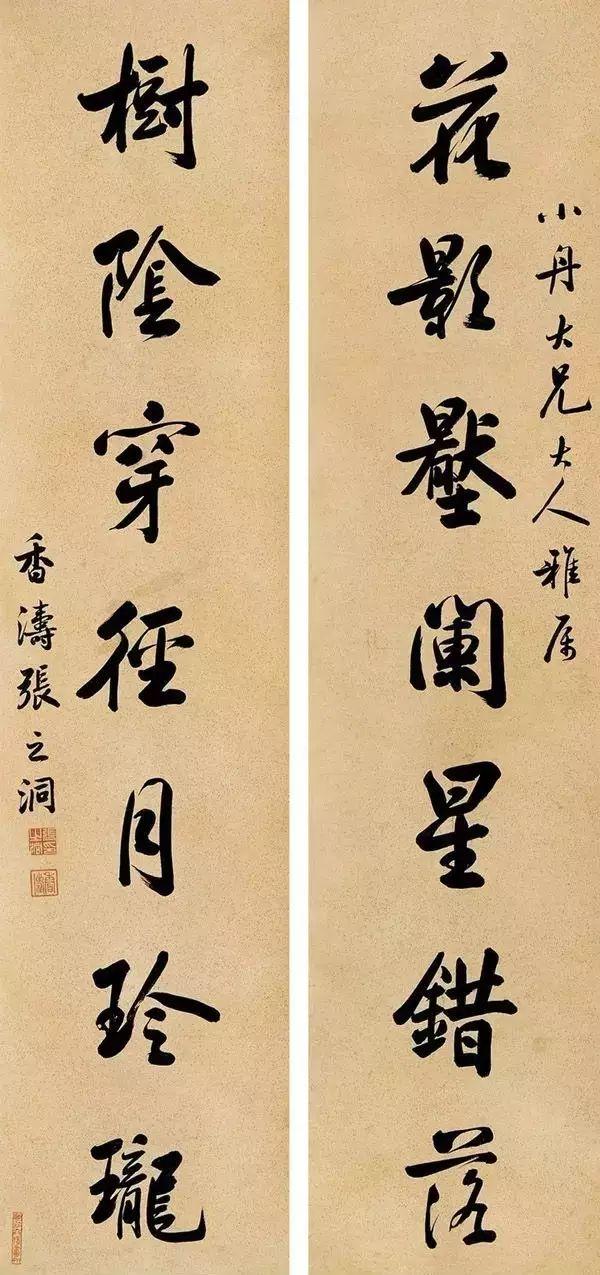 花影壓闌星錯落
小舟大兄大人雅属
樹陰穿徑月玲瓏
香濤張之洞